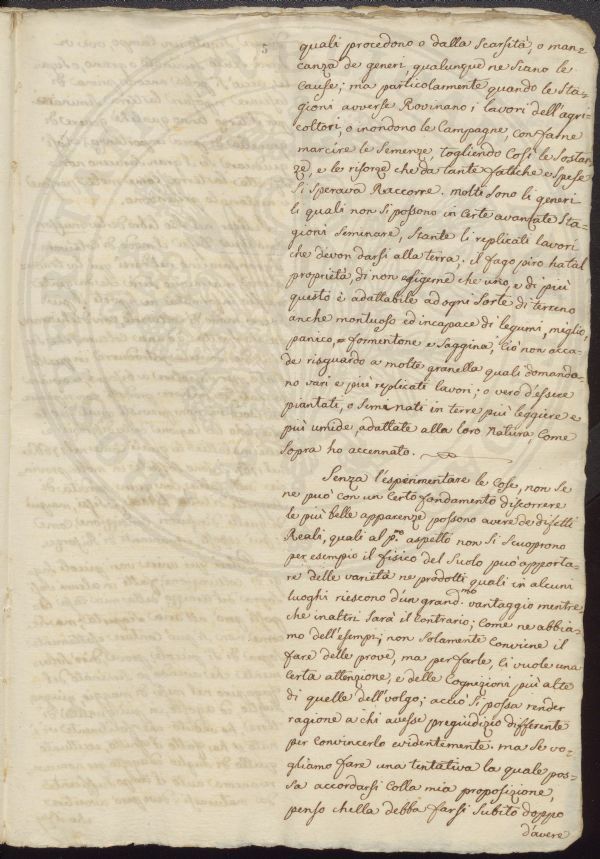 5
quali procedono o dalla scarsità, o man=
canza de generi, qualunque ne siano le
cause; ma particolarmente quando le sta=
gioni avverse Rovinano, i lavori dell'agri=
coltori, o inondono le Campagne, con farne
marcire le Semenze, togliendo Così le sostan
ze, e le risorze che da tante fatiche e spese
si sperava Raccorre. molte sono li generi
li quali non si possono in certe avanzate sta=
gioni seminare, stante li replicati lavori
che devon darsi alla terra; il fago piro ha tal
proprietà, di non esigerne che uno, e di più
questo è adattabile ad ogni sorte di terreno
anche montuoso ed incapace di legumi, miglio,
panico, formentone e saggina, Ciò non acca=
de risguardo a molte granella quali domanda=
no vari e più replicati lavori; o vero d'essere
piantati, o seminati in terre più leggiere e
più umide, adattate alla loro natura, Come
sopra ho accennato.
Senza l'esperimentare le cose, non se
ne può con un certo fondamento discorrere
le più belle apparenze possono avere de difetti
Reali, quali al p.mo aspetto non si scuoprono
per esempio il fisico del suolo può apporta=
re delle varietà ne prodotti quali in alcuni
luoghi riescono d'un grand.mo vantaggio mentre
che in altri sarà il contrario; Come ne abbia=
mo dell'esempi; non solamente conviene il
fare delle prove, ma per farle, ci vuole una
certa attenzione, e delle Cognizioni più alte
di quelle dell'volgo; acciò si possa render
ragione a chi avesse pregiudizio differente
per convincerlo evidentemente. ma se vo=
gliamo fare una tentativa la quale pos=
sa accordarsi colla mia proposizione,
penso chella debba farsi subito doppo
d'avere